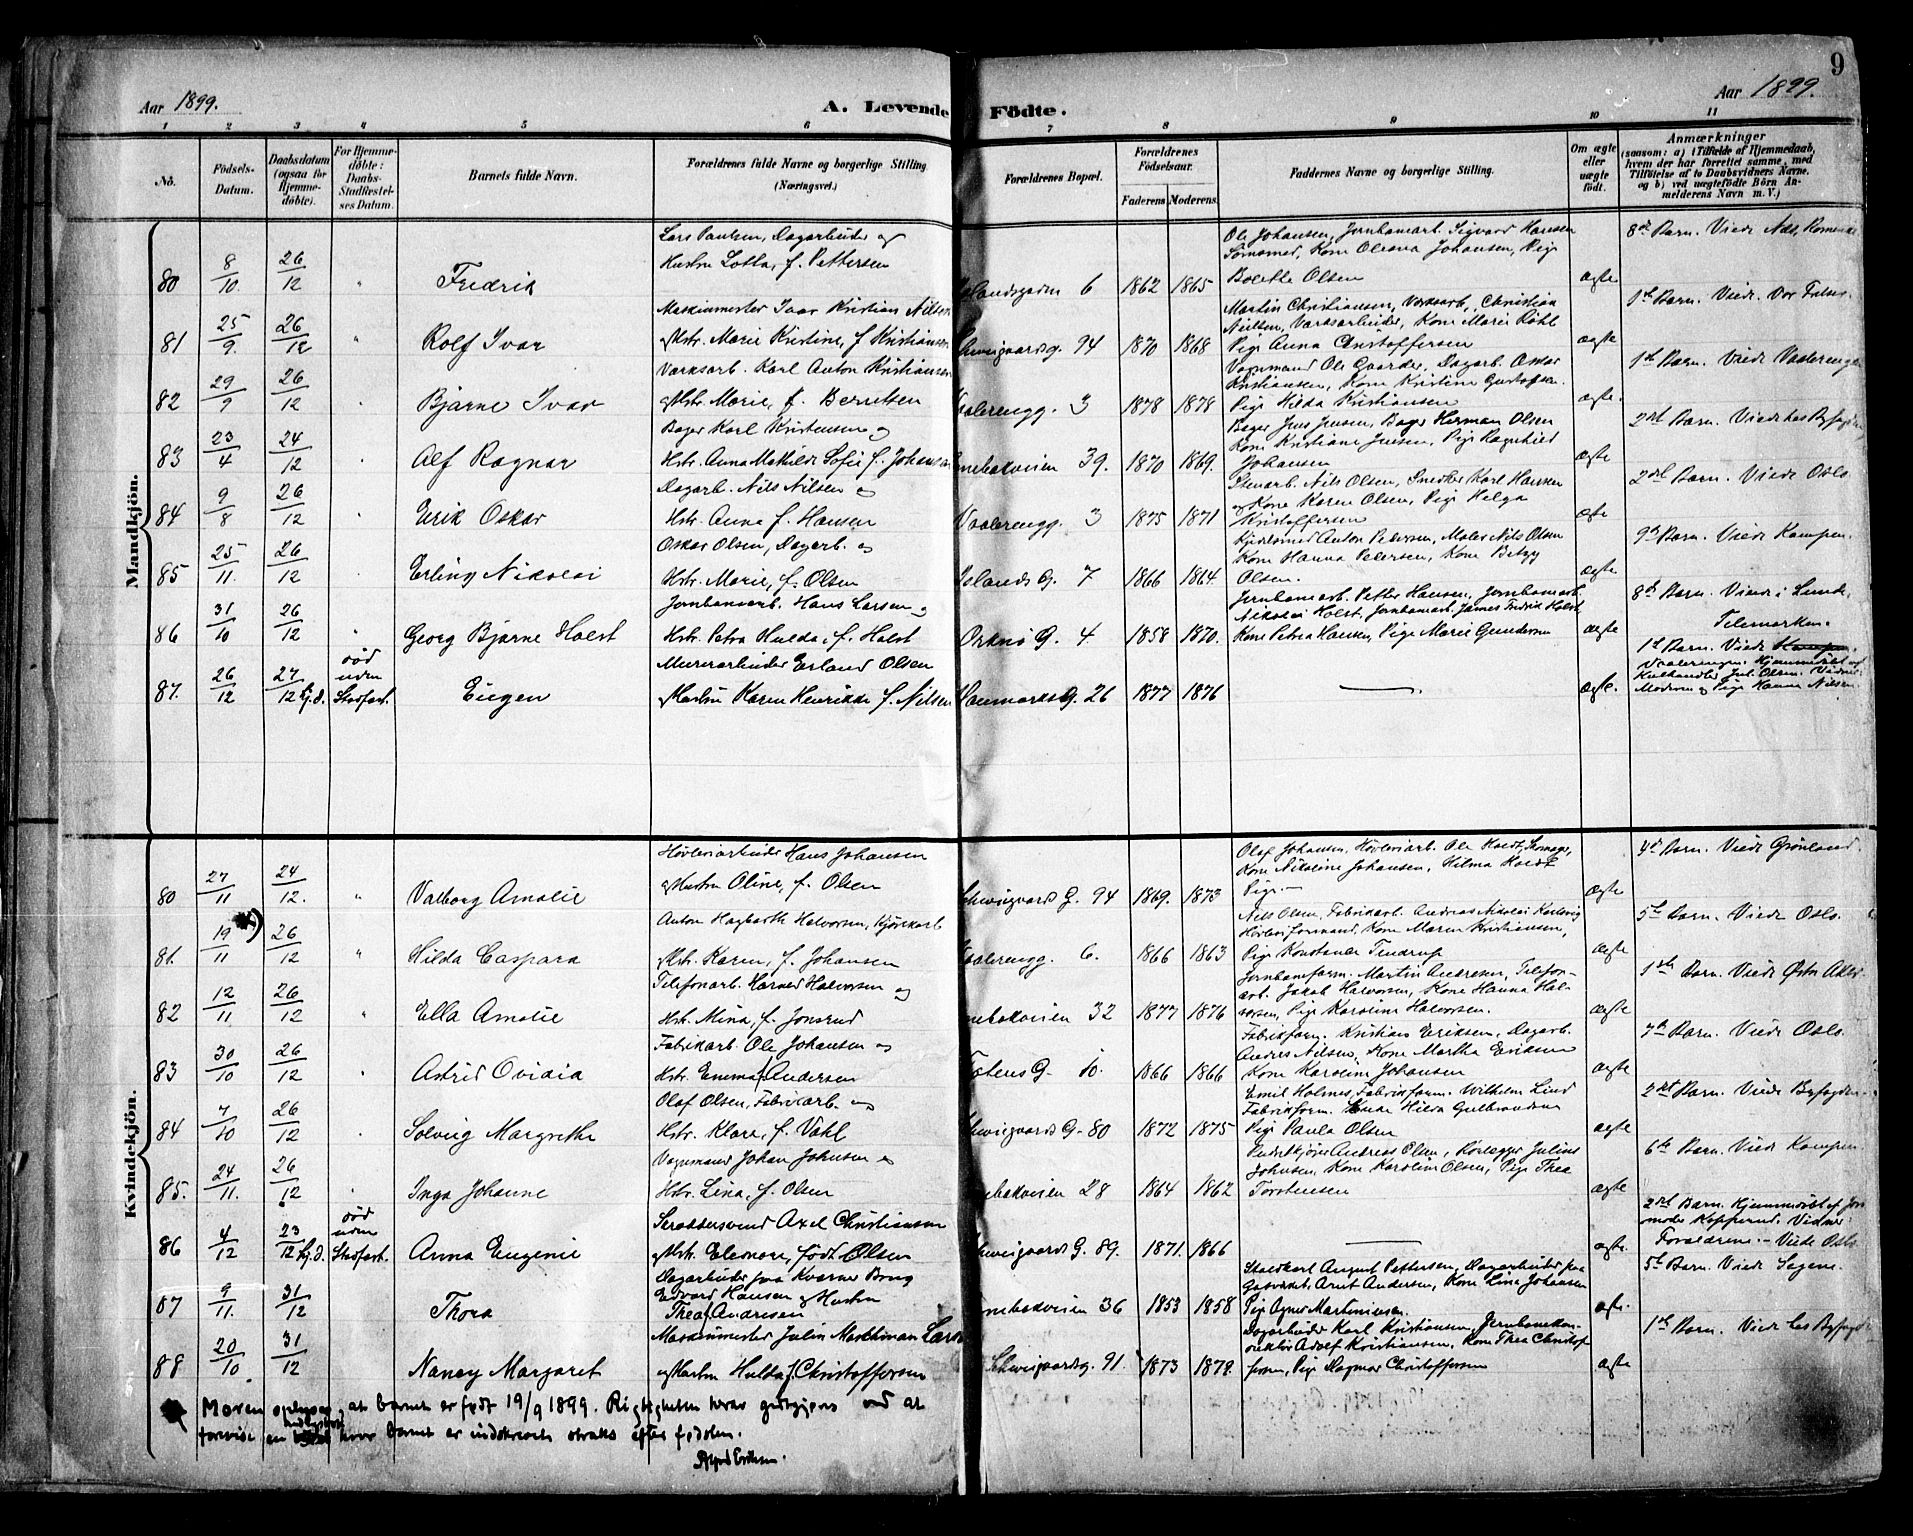 9
Aar 1899.
A. Levende Födte.
Aar 1899.
1 2 3 4 5 6 7 8 9 10 11
No.
Födsels-Datum.
Daabsdatum (ogsaa for Hjemme-döbte).
For Hjemme-döbte: Daabs-Stadfæstel-ses Datum.
Barnets fulde Navn.
Forældrenes fulde Navne og borgerlige Stilling (Næringsvei.)
Forældrenes Bopæl.
Forældrenes Födselsaar.
Faderens. Moderens.
Faddernes Navne og borgerlige Stilling.
Om ægte eller uægte födt.
Anmærkninger (saasom: a) i Tilfælde af Hjemmedaab, hvem der har forrettet samme, med Tilföielse af to Daabsvidners Navne, og b) ved uægtefödte Börn Anmelderens Navn m. V.)
Mandkjön.
80 8/10 26/12 " Fredrik
Lars Paulsen, Dagarbeider og
Hustru Lotta, f. Pettersen
6 1862 1865
Ole Johansen, Jernbanearb. Sigvard Hansen
Kone Oleana Johansen, Pige
Bolette Olsen
ægte
8de Barn. Viede
81 25/9 26/12 " Rolf Ivar
Maskinmester Ivar Kristian Nilsen
og Hstr. Marie Kristine, f. Kristiansen
Schweigaardsg. 94 1870 1868
Martin Christiansen, Værksarb., Christian
Nielsen, Værksarbeider, Kone Marie Röhl
Pige Anna Christoffersen
ægte
1ste Barn. Viede Vor Frelser
82 29/9 26/12 " Bjarne Ivar
Værksarb. Karl Anton Kristiansen
og Hstr. Marie, f. Berntsen
Vaalerengg. 3 1878 1878
Vognmand Ole Gaarder, Dagarb. Oskar
Kristiansen, Kone Kristine Gustafsen
Pige Hilda Kristiansen
ægte.
1ste Barn. Viede Vaalerengen
83 23/4 24/12 Alf Ragnar
Bager Karl Kristensen og
Hstr. Anna Mathilde Sofie f. Johansen
Enebakveien 39. 1870 1869.
Bager Jens Jensen, Bager Herman Olsen
Kone Kristiane Jensen, Pige Ragnhild
Johansen
ægte
2det Barn. Viede hos Byfogden
84 9/8 26/12 Erik Oskar
Dagarb. Nils Nilsen og
Hstr. Anna f. Hansen
Vaalerengg. 3 1875 1871
Stenarb. Nils Olsen, Smedker Karl Hansen
og Kone Karen Olsen, Pige Helga
Kristoffersen
ægte
2det Barn. Viede Oslo
85 25/11. 26/12 Erling Nikolai
Oskar Olsen, Dagarb. og
Hstr. Marie, f. Olsen
Islands G. 7 1866 1864.
Anton Pedersen, Maler Nils Olsen
Kone Hanna Pedersen, Kone Betzy
Olsen.
ægte
9de Barn. Viede Kampen.
86 31/10 26/12 " Georg Bjarne Holst
Jernbanearb. Hans Larsen og
Hstr. Petra Hulda, f. Holst
Orknö G. 4 1858 1870.
Jernbanearb. Petter Hansen, Jernbanearb.
Nikolai Holst, Jernbanearb. James Fredrik Holst
Kone Petra Hansen, Pige Marie Gundersen
ægte
8de Barn. Viede i
Telemarken.
87. 26/12 27/12 hj.d. död uden Stadfæst. Eugen
Murerarbeider Erland Olsen
og Hustru Karen Henrikke f. Nilsen
Danmarks G. 26 1877 1876
—
ægte.
1st Barn. Viede Kampen.
Vaalerengen. Hjemmedöbt af
Kulhandler Jul. Olsen. Vidner
Moderen og Pige Hanna Nilsen.
Kvindekjön.
80 27/11 24/12. " Valborg Amalie
Hövleriarbeider Hans Johansen
og Hustru Oline, f. Olsen
Schweigaards G. 94 1869. 1873
Olaf Johansen, Hövleriarb. Ole Hoidt, Skomager,
Kone Nikoline Johansen, Hilma Hoidt
Pige.—
ægte
4de Barn. Viede Grönland.
81. 19/11 26/12 " Hilda Caspara
Anton Hagbarth Halvorsen, Kjörekarl
og Hstr. Karen, f. Johansen
Vaalerengg. 6. 1866 1863
Nils Olsen, Fabrikarb. Andreas Nikolai
Hövleriformand, Kone Maren Kristiansen,
Pige Konstance Tendrup
ægte
5te Barn. Viede Oslo.
82 12/11. 26/12 " Ella Amalie
Telefonarb. Harald Halvorsen og
Hstr. Mina, f. Jonsrud
Enebakveien 32 1877 1876
Jernbaneform. Martin Andresen, Telefon-
arb. Jakob Halvorsen, Kone Hanna Hal-
vorsen, Pige Karoline Halvorsen.
ægte
1ste Barn. Viede Östre Aker
83 30/10 26/12 Astrid Ovidia
Fabrikarb. Ole Johansen og
Hstr. Emma f. Andersen
10. 1866 1866
Fabrikform. Kristian Eriksen, Dagarb.
Andres Nilsen, Kone Martha Eriksen
Kone Karoline Johansen
ægte
7de Barn. Viede Oslo.
84 7/10 26/12 Solveig Margrethe
Olaf Olsen, Fabrikarb. og
Hstr. Klara, f. Vahl
Schweigaards G. 80 1872 1875
Emil Holmes, Fabrikform. Wilhelm Lind
Fabrikform. Hilda Gulbrandsen
Pige Paula Olsen
ægte
2det Barn. Viede Byfogden
85. 24/11. 26/12 Inga Johanne
Vognmand Johan Johnsen og
Hstr. Lina, f. Olsen
Enebakveien 28 1864 1862
Andreas Olsen, Rörlægger Julius
Johnsen, Kone Karoline Olsen, Pige Thea
Torstensen
ægte
6te Barn. Viede Kampen
86 4/12 23/12 hj.d. död uden Stadfæst. Anna Eugenie
Skræddersvend Axel Christiansen
og Hstr. Eleonore, född Olsen
Schweigaards G. 89. 1871. 1866
—
ægte.
2det Barn. Hjemmedöbt af Jor-
moder Kopperud. Vidner:
Forældrene.— Viede Oslo.
87 9/11. 31/12 Thora
Dagarbeider paa Kværner Brug
Edvard Hansen og Hustru
Thea f. Andresen
Enebakveien 36 1853 1858
Staldkarl August Pettersen, Dagarbeider paa
Gasværket Arnt Andersen, Kone Lina Johansen
Pige Agnes Martiniusen.
ægte.
5te Barn. Viede Sagene.
88 20/10 31/12 Nancy Margaret
Maskinmester Julin Martiman Larsen
og Hustru Hulda f. Christoffersen
Schweigaardsg. 91. 1873 1878.
Dagarbeider Karl Kristiansen, Jernbanekon-
duktör Adolf Kristiansen, Kone Thea Christof-
fersen, Pige Dagmar Christoffersen
ægte
1ste Barn. Viede hos Byfogden
Moren oplyser, at barnet er født 19/9 1899. Rigtigheten herav godtgjøres ved at
forevise en hvor barnet er indskrevet straks efter fødslen.
Alfred Eriksen.